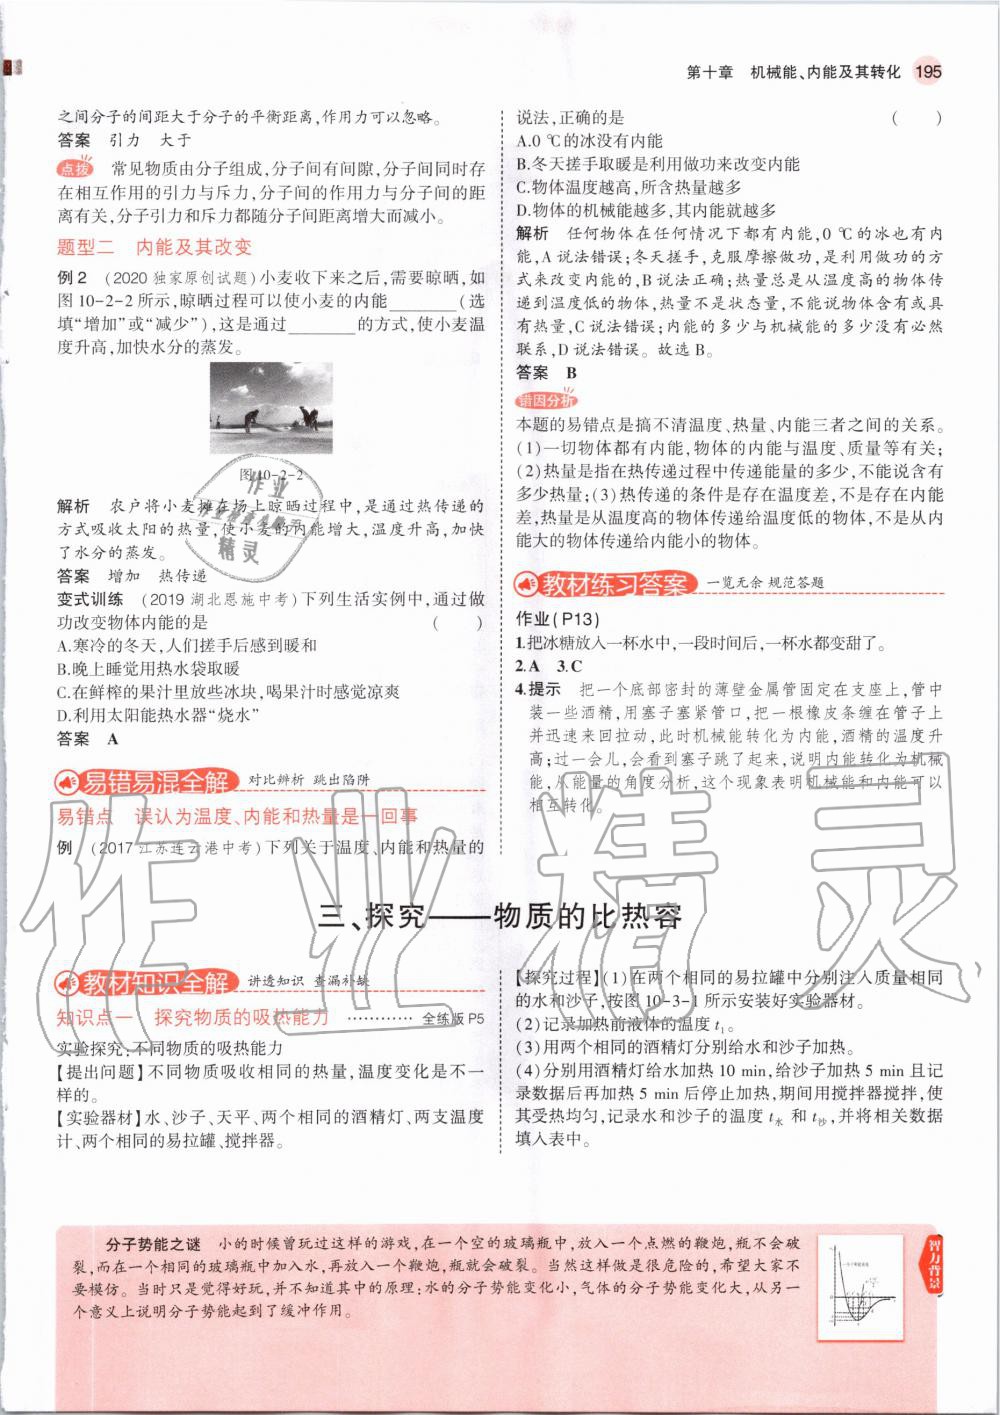 第十章 机械能、内能及其转化 195
之间分子的间距大于分子的平衡距离,作用力可以忽略。
答案 引力 大于
点拨 常见物质由分子组成,分子间有间隙,分子间同时存
在相互作用的引力与斥力,分子间的作用力与分子间的距
离有关,分子引力和斥力都随分子间距离增大而减小。
题型二 内能及其改变
例2 (2020独家原创试题)小麦收下来之后,需要晾晒,如
图10-2-2所示,晾晒过程可以使小麦的内能________(选
填“增加”或“减少”),这是通过________的方式,使小麦温
度升高,加快水分的蒸发。
图10-2-2
解析 农户将小麦摊在场上晾晒过程中,是通过热传递的
方式吸收太阳的热量,使小麦的内能增大,温度升高,加快
了水分的蒸发。
答案 增加 热传递
变式训练 (2019湖北恩施中考)下列生活实例中,通过做
功改变物体内能的是 ( )
A.寒冷的冬天,人们搓手后感到暖和
B.晚上睡觉用热水袋取暖
C.在鲜榨的果汁里放些冰块,喝果汁时感觉凉爽
D.利用太阳能热水器“烧水”
答案 A
易错易混全解 对比辨析 跳出陷阱
易错点 误认为温度、内能和热量是一回事
例 (2017江苏连云港中考)下列关于温度、内能和热量的
说法,正确的是 ( )
A.0 ℃的冰没有内能
B.冬天搓手取暖是利用做功来改变内能
C.物体温度越高,所含热量越多
D.物体的机械能越多,其内能就越多
解析 任何物体在任何情况下都有内能,0 ℃的冰也有内
能,A说法错误;冬天搓手,克服摩擦做功,是利用做功的方
式来改变内能的,B说法正确;热量总是从温度高的物体传
递到温度低的物体,热量不是状态量,不能说物体含有或具
有热量,C说法错误;内能的多少与机械能的多少没有必然
联系,D说法错误。故选B。
答案 B
错因分析
本题的易错点是搞不清温度、热量、内能三者之间的关系。
(1)一切物体都有内能,物体的内能与温度、质量等有关;
(2)热量是指在热传递过程中传递能量的多少,不能说含有
多少热量;(3)热传递的条件是存在温度差,不是存在内能
差,热量是从温度高的物体传递给温度低的物体,不是从内
能大的物体传递给内能小的物体。
教材练习答案 一览无余 规范答题
作业(P13)
1.把冰糖放入一杯水中,一段时间后,一杯水都变甜了。
2.A 3.C
4.提示 把一个底部密封的薄壁金属管固定在支座上,管中
装一些酒精,用塞子塞紧管口,把一根橡皮条缠在管子上
并迅速来回拉动,此时机械能转化为内能,酒精的温度升
高;过一会儿,会看到塞子跳了起来,说明内能转化为机械
能,从能量的角度分析,这个现象表明机械能和内能可以
相互转化。
三、探究——物质的比热容
教材知识全解 讲透知识 查漏补缺
知识点一 探究物质的吸热能力 ………… 全练版P5
实验探究:不同物质的吸热能力
【提出问题】不同物质吸收相同的热量,温度变化是不一
样的。
【实验器材】水、沙子、天平、两个相同的酒精灯、两支温度
计、两个相同的易拉罐、搅拌器。
【探究过程】(1)在两个相同的易拉罐中分别注入质量相同
的水和沙子,按图10-3-1所示安装好实验器材。
(2)记录加热前液体的温度t₁。
(3)用两个相同的酒精灯分别给水和沙子加热。
(4)分别用酒精灯给水加热10 min,给沙子加热5 min且记
录数据后再加热5 min后停止加热,期间用搅拌器搅拌,使
其受热均匀,记录水和沙子的温度t水和t沙,并将相关数据
填入表中。
分子势能之谜 小的时候曾玩过这样的游戏,在一个空的玻璃瓶中,放入一个点燃的鞭炮,瓶不会破
裂,而在一个相同的玻璃瓶中加入水,再放入一个鞭炮,瓶就会破裂。当然这样做是很危险的,希望大家不
要模仿。当时只是觉得好玩,并不知道其中的原理:水的分子势能变化小,气体的分子势能变化大,从另一
个意义上说明分子势能起到了缓冲作用。
智力背景
作业精灵
作业
精灵